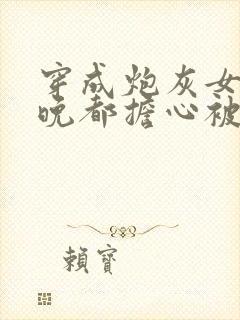 穿成炮灰女
晚都擔心被
賴寶